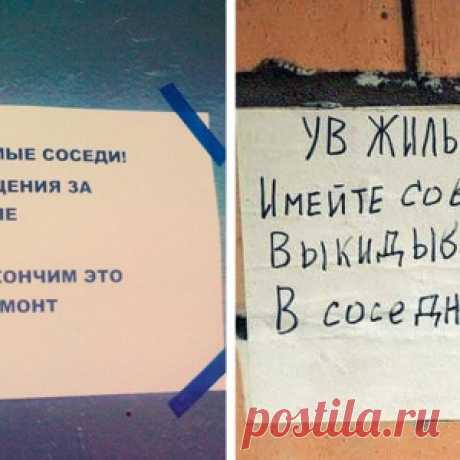 МЫЕ СОСЕДИ!
ЩЕНИЯ ЗА
ИЕ
КОНЧИМ ЭТО
МОНТ
УВ ЖИЛЬ
ИМЕЙТЕ СОВ
ВЫКИДЫВ
В СОСЕДН
postila.ru